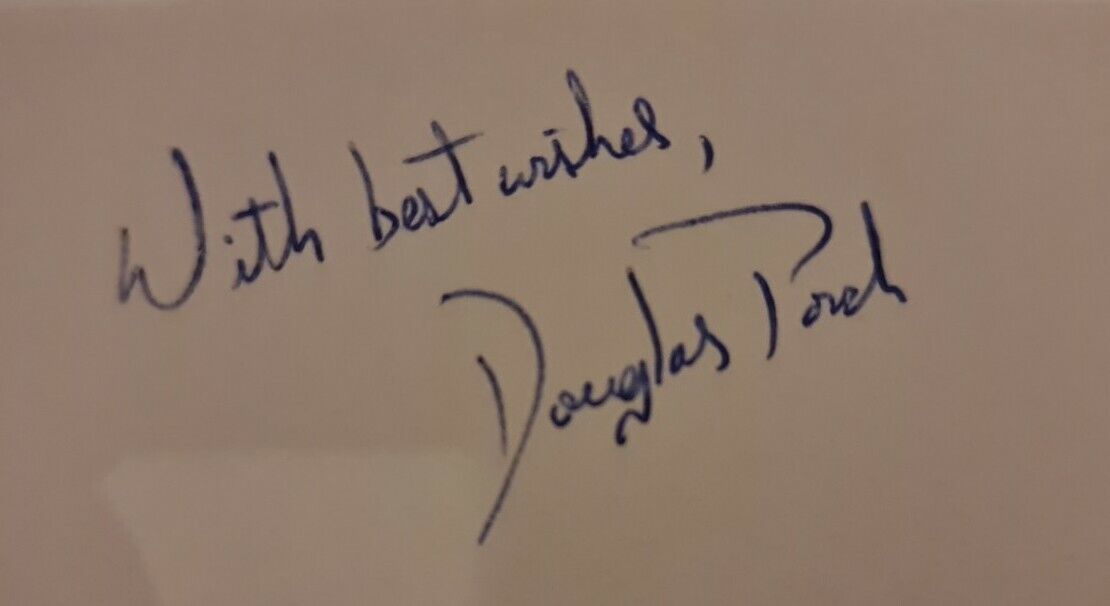 With best wishes,
Douglas Porch